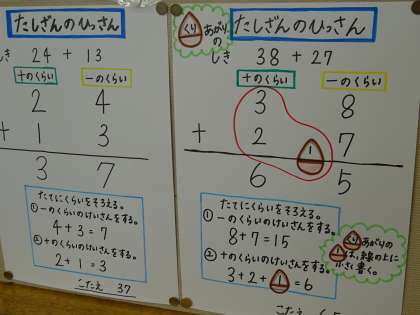 たしざんのひっさん
しき 24 + 13
十のくらい 一のくらい
2 4
+ 1 3
3 7
たてにくらいをそろえる。
① 一のくらいのけいさんをする。
4 + 3 = 7
② 十のくらいのけいさんをする。
2 + 1 = 3
こたえ 37
くり あがり
の
たしざんのひっさん
しき 38 + 27
十のくらい 一のくらい
3 8
+ 2 1 7
6 5
たてにくらいをそろえる。
① 一のくらいのけいさんをする。
8 + 7 = 15
② 十のくらいのけいさんをする。
3 + 2 + 1 = 6
くり あがりの
1 は、線の上に
小さく書く。
こたえ